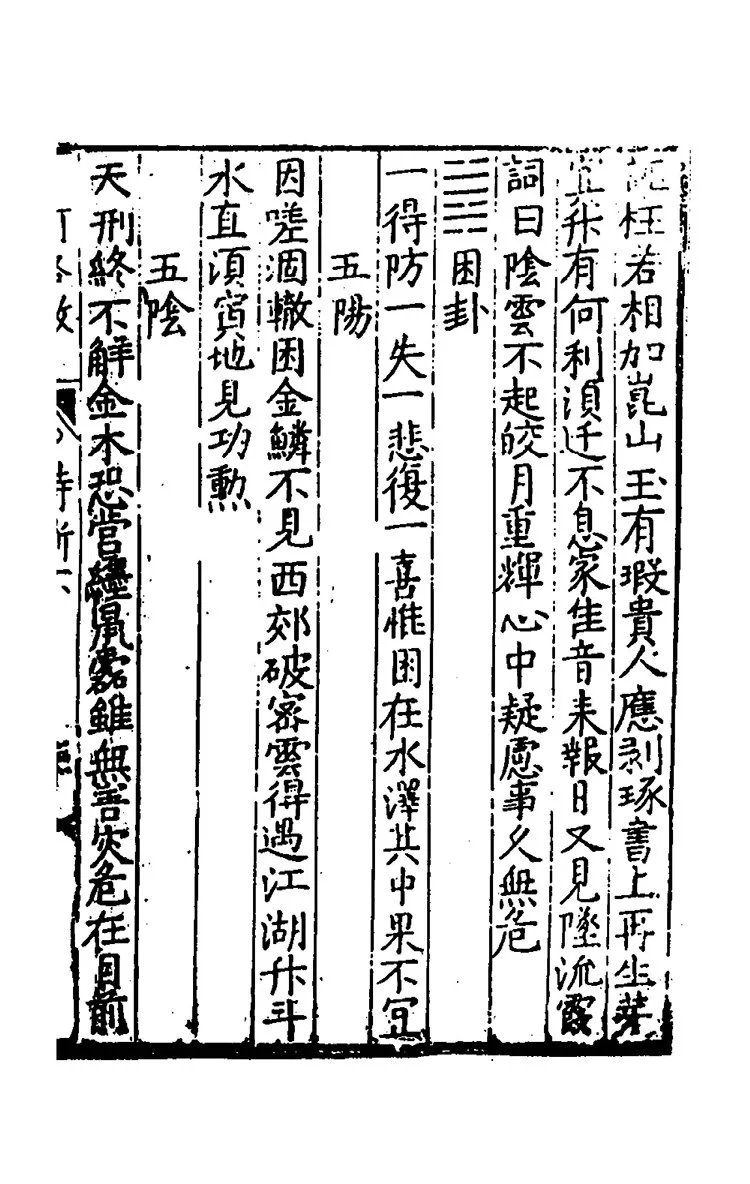 枉若相加崑山玉有瑕貴人應剥琢書上再生芽
宜升有何利湏迁不息家隹音未報日又見墜流霞
詞曰陰雲不起皎月重輝心中疑慮事久無危
困卦
一得防一失一悲復一喜惟困在水澤其中果不宜
五陽
因嗟涸轍困金鱗不見西郊破密雲得遇江湖升斗
水直湏寅地見功勲
五陰
天刑終不解金木恐営纏鼠雖無善灾危在目前